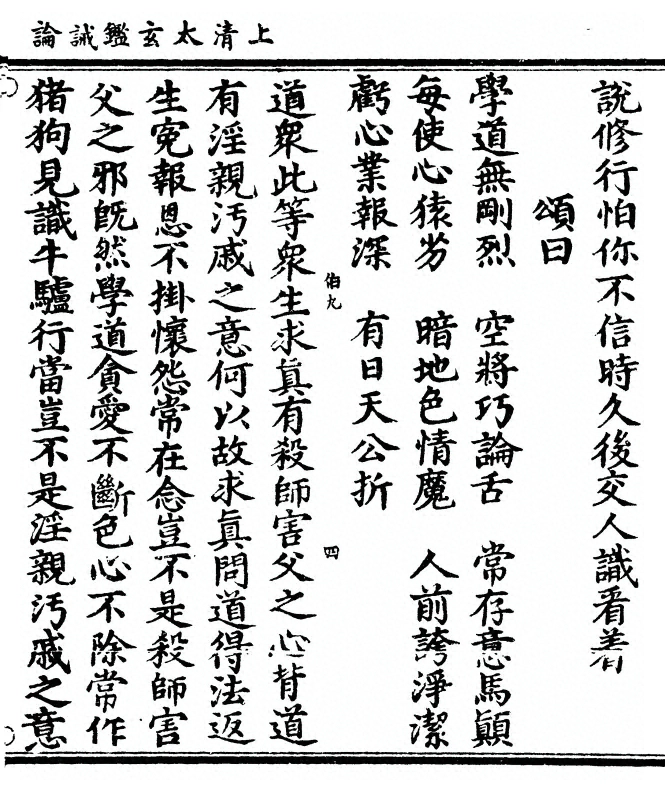 上清太玄鑑誡論
說修行怕你不信時久後交人識看着
頌曰
學道無剛烈 空將巧論舌 常存意馬顛
每使心猿劣 暗地色情魔 人前誇淨潔
虧心業報深 有日天公折
伯九 四
道眾此等眾生求真有殺師害父之心背道
有淫親汚戚之意何以故求真問道得法返
生寃報恩不掛懷怨常在念豈不是殺師害
父之邪既然學道貪愛不斷色心不除常作
猪狗見識牛驢行當豈不是淫親汚戚之意